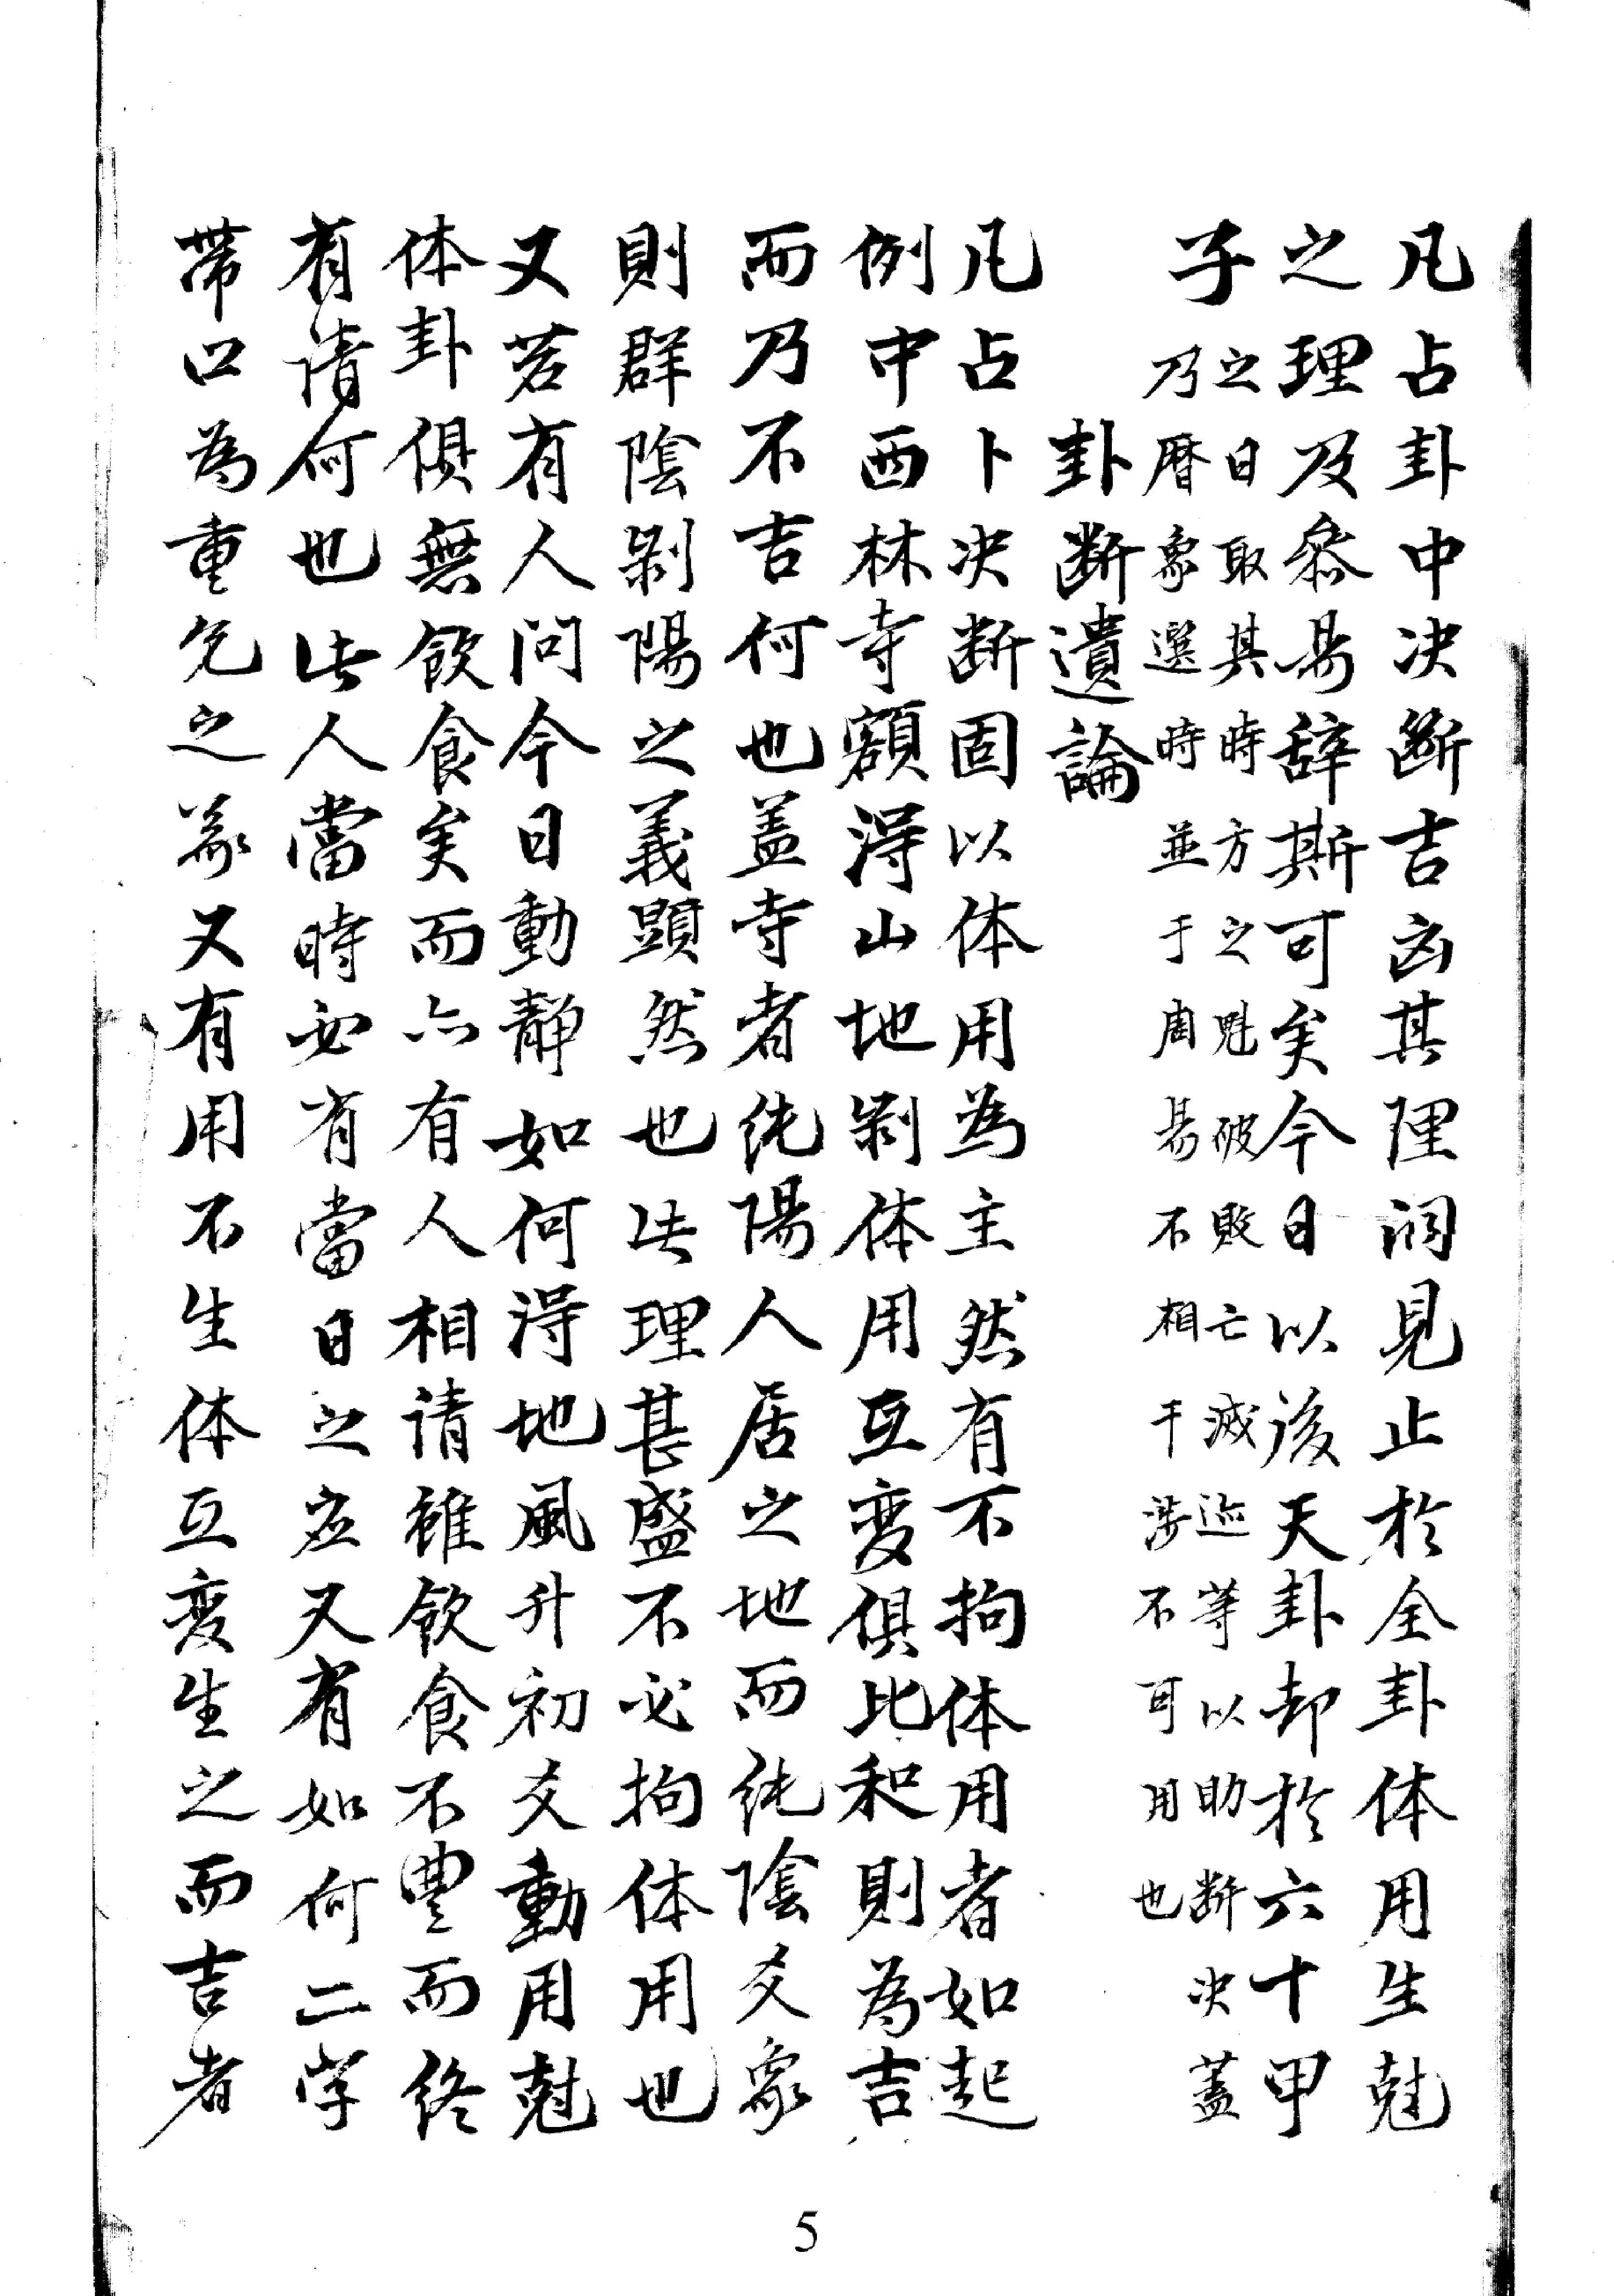 凡占卦中决断吉凶其理洞見止於全卦体用生尅
之理及叅易辞斯可矣今日以後天卦却於六十甲
子之日取其時方之魁破敗亡滅迹等以助断决蓋
乃暦象選時並于周易不相干涉不可用也
卦断遺論
凡占卜决断固以体用為主然有不拘体用者如起
例中西林寺額淂山地剝体用互变俱比和則為吉
而乃不吉何也盖寺者純陽人居之地而純陰爻象
則群陰剝陽之義顕然也此理甚盛不必拘体用也
又若有人问今日動静如何淂地風升初爻動用尅
体卦俱無飲食矣而亦有人相請雖飲食不豊而终
有请何也此人當時必有當日之应又有如何二字
帶口為重兑之義又有用不生体互变生之而吉者
5